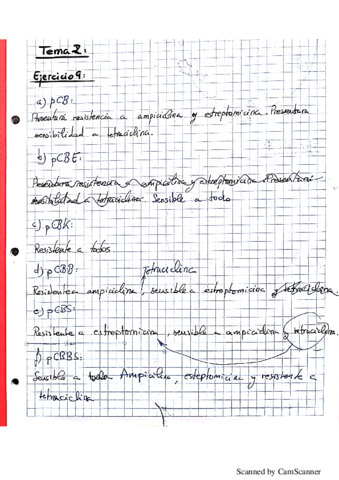 Tema 2:
Ejercicio 9:
a) pCB:
Presentará resistencia a ampicilina y estreptomicina. Presentará
sensibilidad a tetraciclina.
b) pCBE:
Presentará resistencia a ampicilina y estreptomicina. Presentará
sensibilidad a tetraciclina. Sensible a todo
c) pCBK:
Resistente a todos
d) pCBB: tetraciclina
Resistente a ampicilina, sensible a estreptomicina y tetraciclina.
e) pCBS:
Resistente a estreptomicina, sensible a ampicilina y tetraciclina.
f) pCBBS:
Sensible a toda Ampicilina, esteptomicina y resistente a
tetraciclina
Scanned by CamScanner